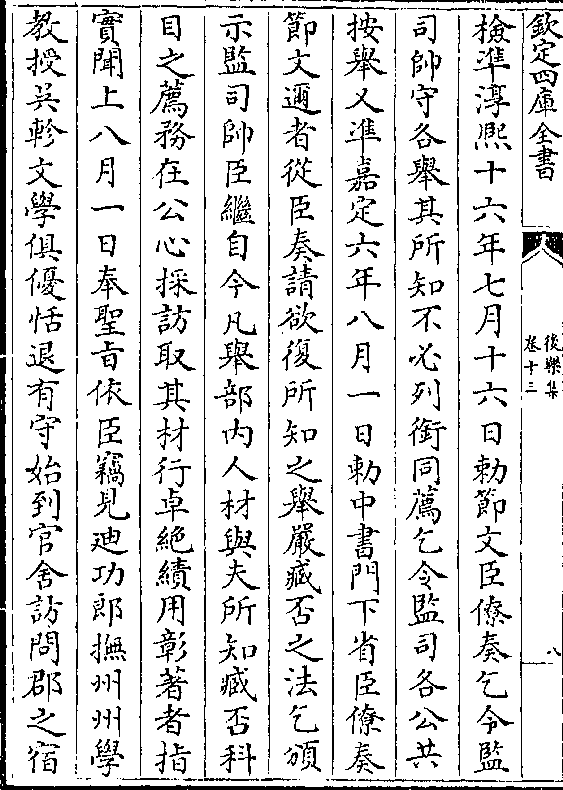 欽定四庫全書
後樂集
卷十三
八
檢準淳熈十六年七月十六日勅節文臣僚奏乞令監
司帥守各舉其所知不必列銜同薦乞令監司各公共
按舉又準嘉定六年八月一日勅中書門下省臣僚奏
節文邇者從臣奏請欲復所知之舉嚴臧否之法乞頒
示監司帥臣繼自今凡舉部内人材與夫所知臧否科
目之薦務在公心採訪取其材行卓絶績用彰著者指
實聞上八月一日奉聖㫖依臣竊見廸功郎撫州州學
教授吴軫文學俱優恬退有守始到官舍訪問郡之宿